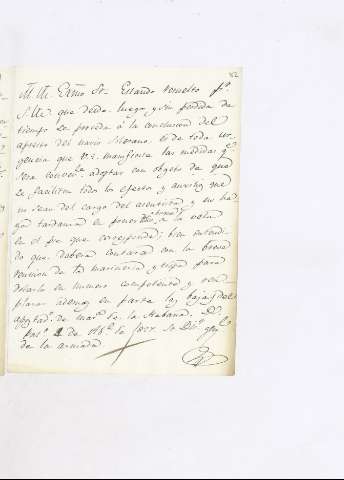 82
M. M. Exmo Sr. Estando resuelto pr.
S. M. que desde luego, y sin perdida de
tiempo se proceda à la conclusion del
apresto del navio Soberano es de toda ur-
gencia que V.E. manifieste las medidas qe.
sera convente. adoptar con objeto de que
se faciliten todos los efectos y auxilios que
no sean del cargo del asentista y no ha-
ya tardanza en ponerlo à la vela
en el pie que corresponde; bien entendi-
do que debera contarse con la
de la marineria y tropa para
dotarlo en numero competente y reem-
plazar ademas en parte las bajas del
apostado. de mara. de la Habana. D.
Palo. 2 de de So. Dir. gral.
de la armada